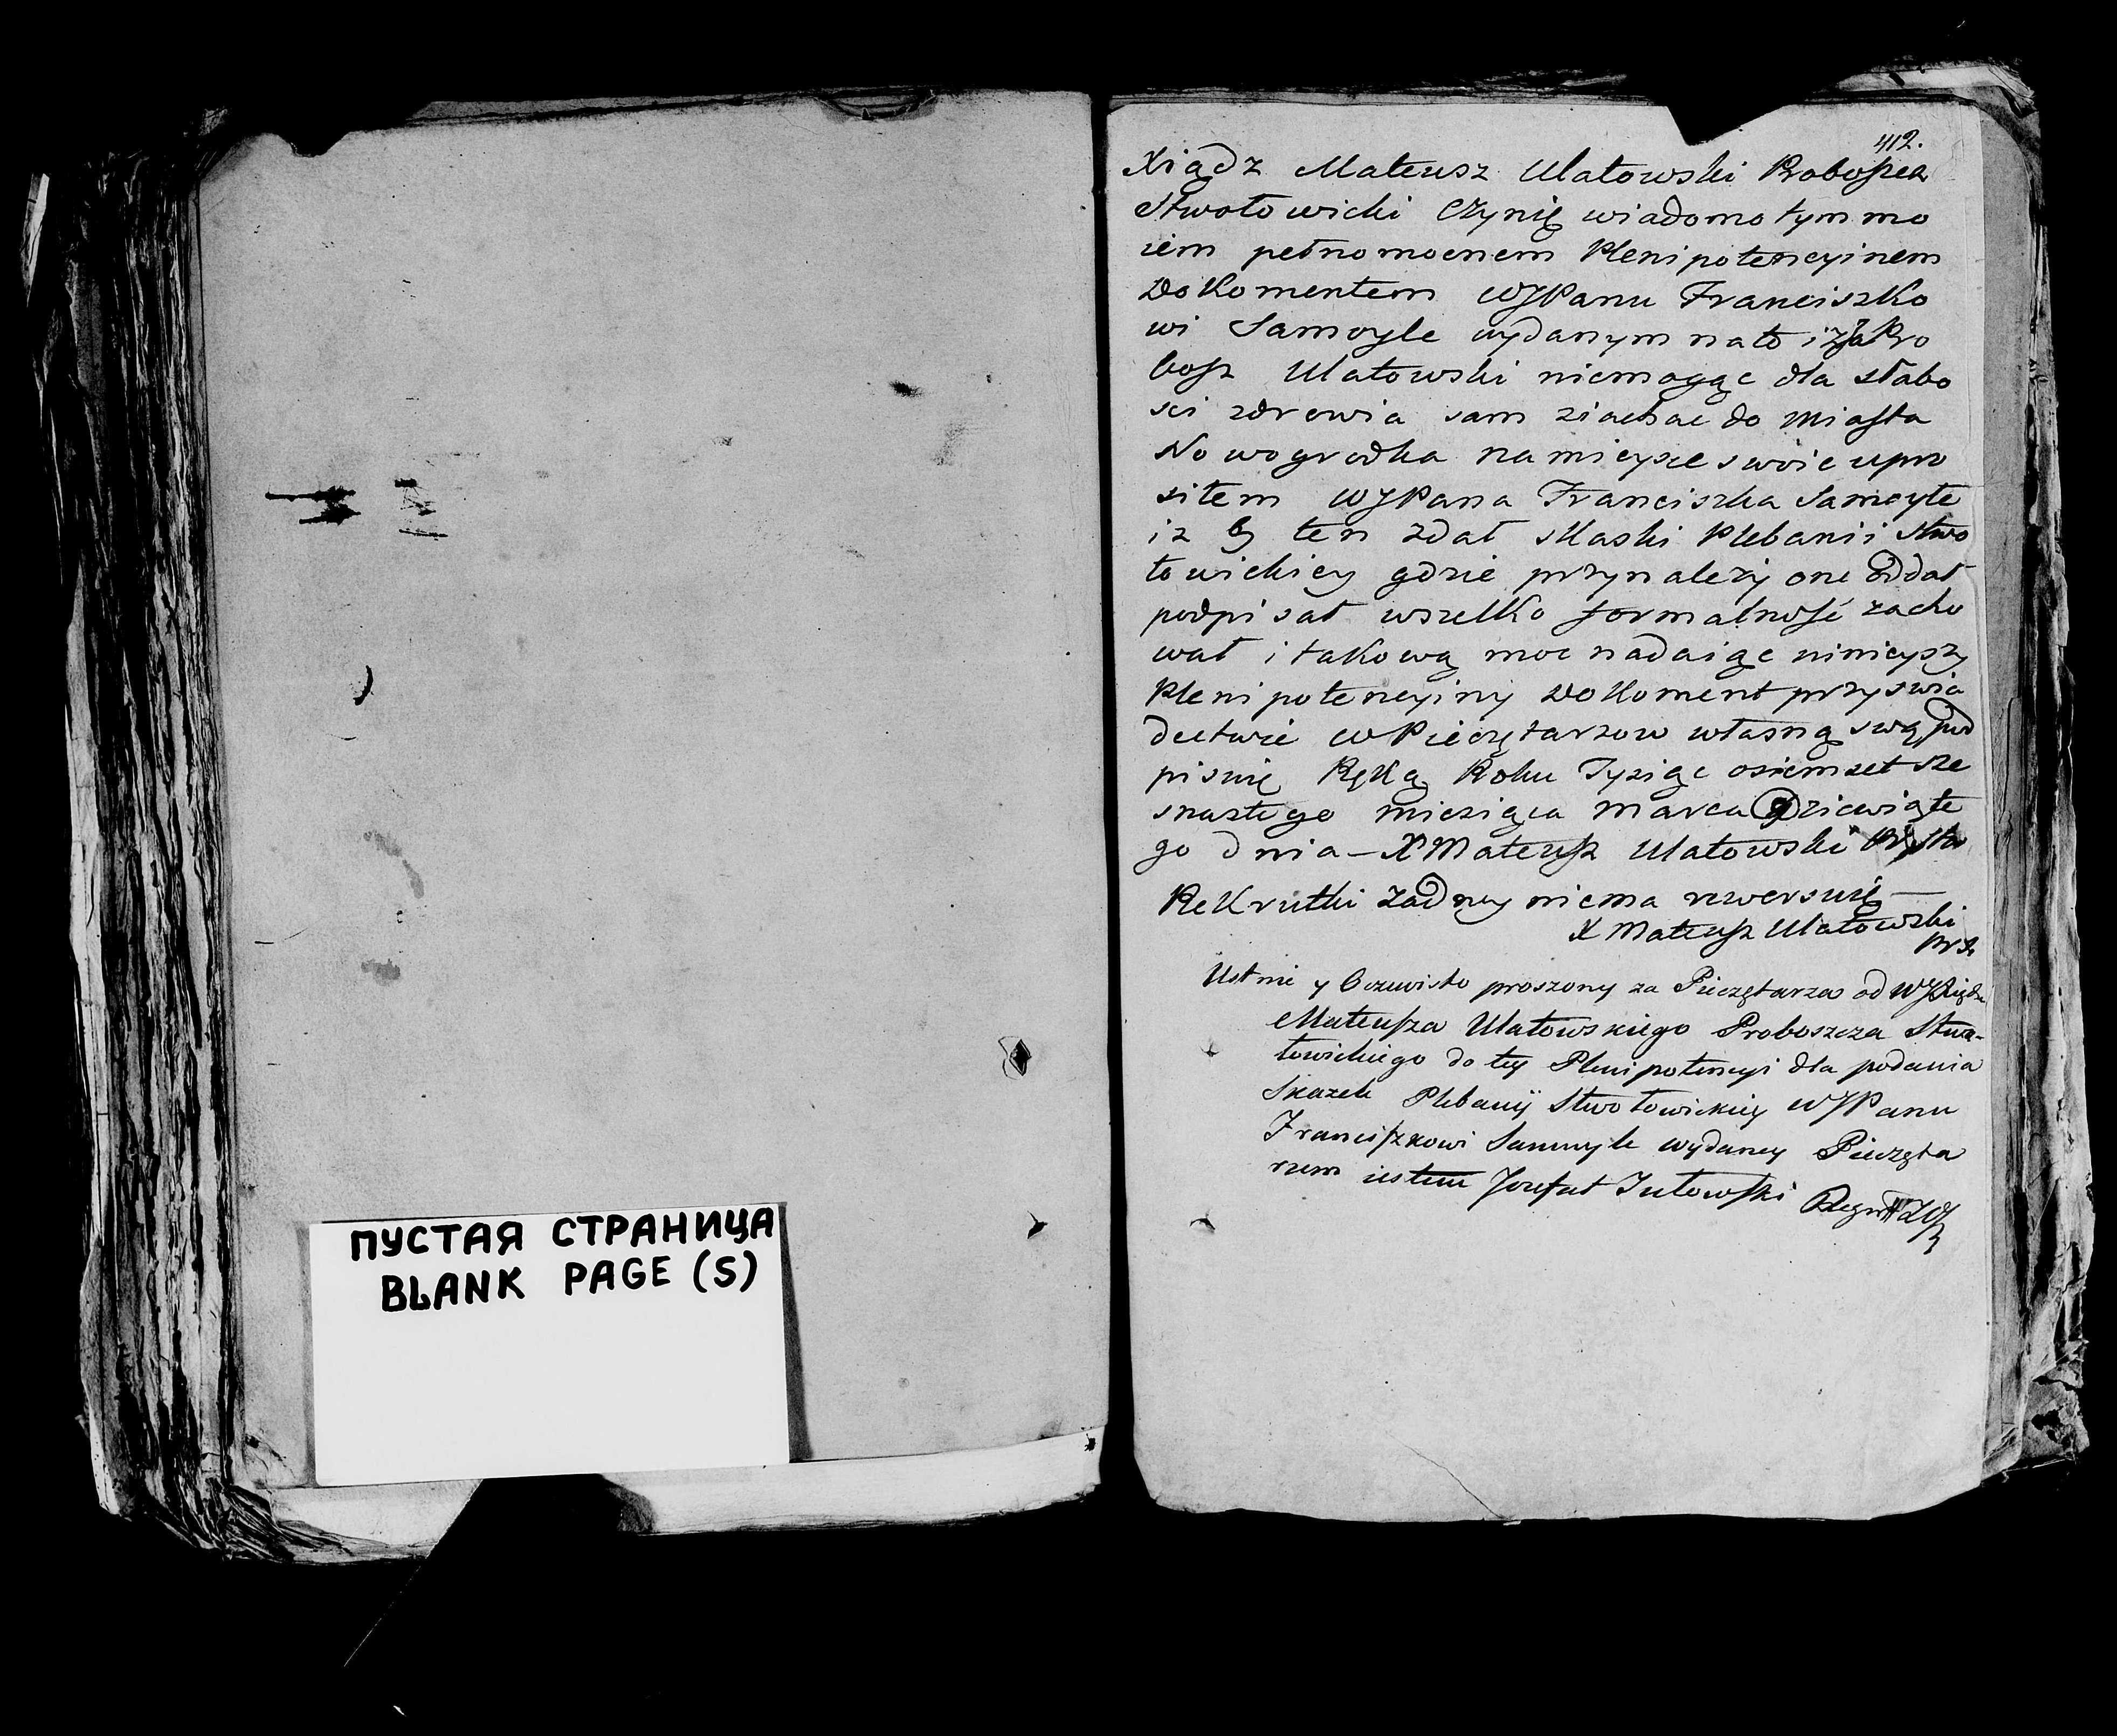 ПУСТАЯ СТРАНИЦА
BLANK PAGE (S)
412.
Xiądz Mateusz Ulatowski Proboszcz
Stwołowicki Czynię wiadomo tym mo
iem pełnomocnem Plenipotencyinem
Dokomentem WJPanu Franciszko
wi Samoyle wydanym na to iż Ja Pro
boszcz Ulatowski niemogąc dla słabo
sci zdrowia sam ziachac do Miasta
Nowogrodka na mieysce swoie upro
siłem WJPana Franciszka Samoyłe
iz by ten zdał skaski Plebanii Stwo
łowickiey gdzie przynalezy one oddał
podpisał wszelko formalność zacho
wał i takową moc nadaiąc ninieyszy
Plenipotencyiny Dokoment przy swia
dectwie WPieczętarzow własną swą pod
pisuię Ręką Roku Tysiąc osiemset sze
snastego miesiąca Marca dziewiąte
go dnia – X Mateusz Ulatowski
Rekrutki zadney niema rewersuię —
X Mateusz Ulatowski
Ustnie y Oczewisto proszony za Pieczętarza od WJXiędza
Mateusza Ulatowskiego Proboszcza Stwo-
łowickiego do tey Plenipotencyi dla podania
Skazek Plebanij Stwołowickiey WJPanu
Franciszkowi Samuyle wydaney Pieczęta
rzem iestem Jozefat